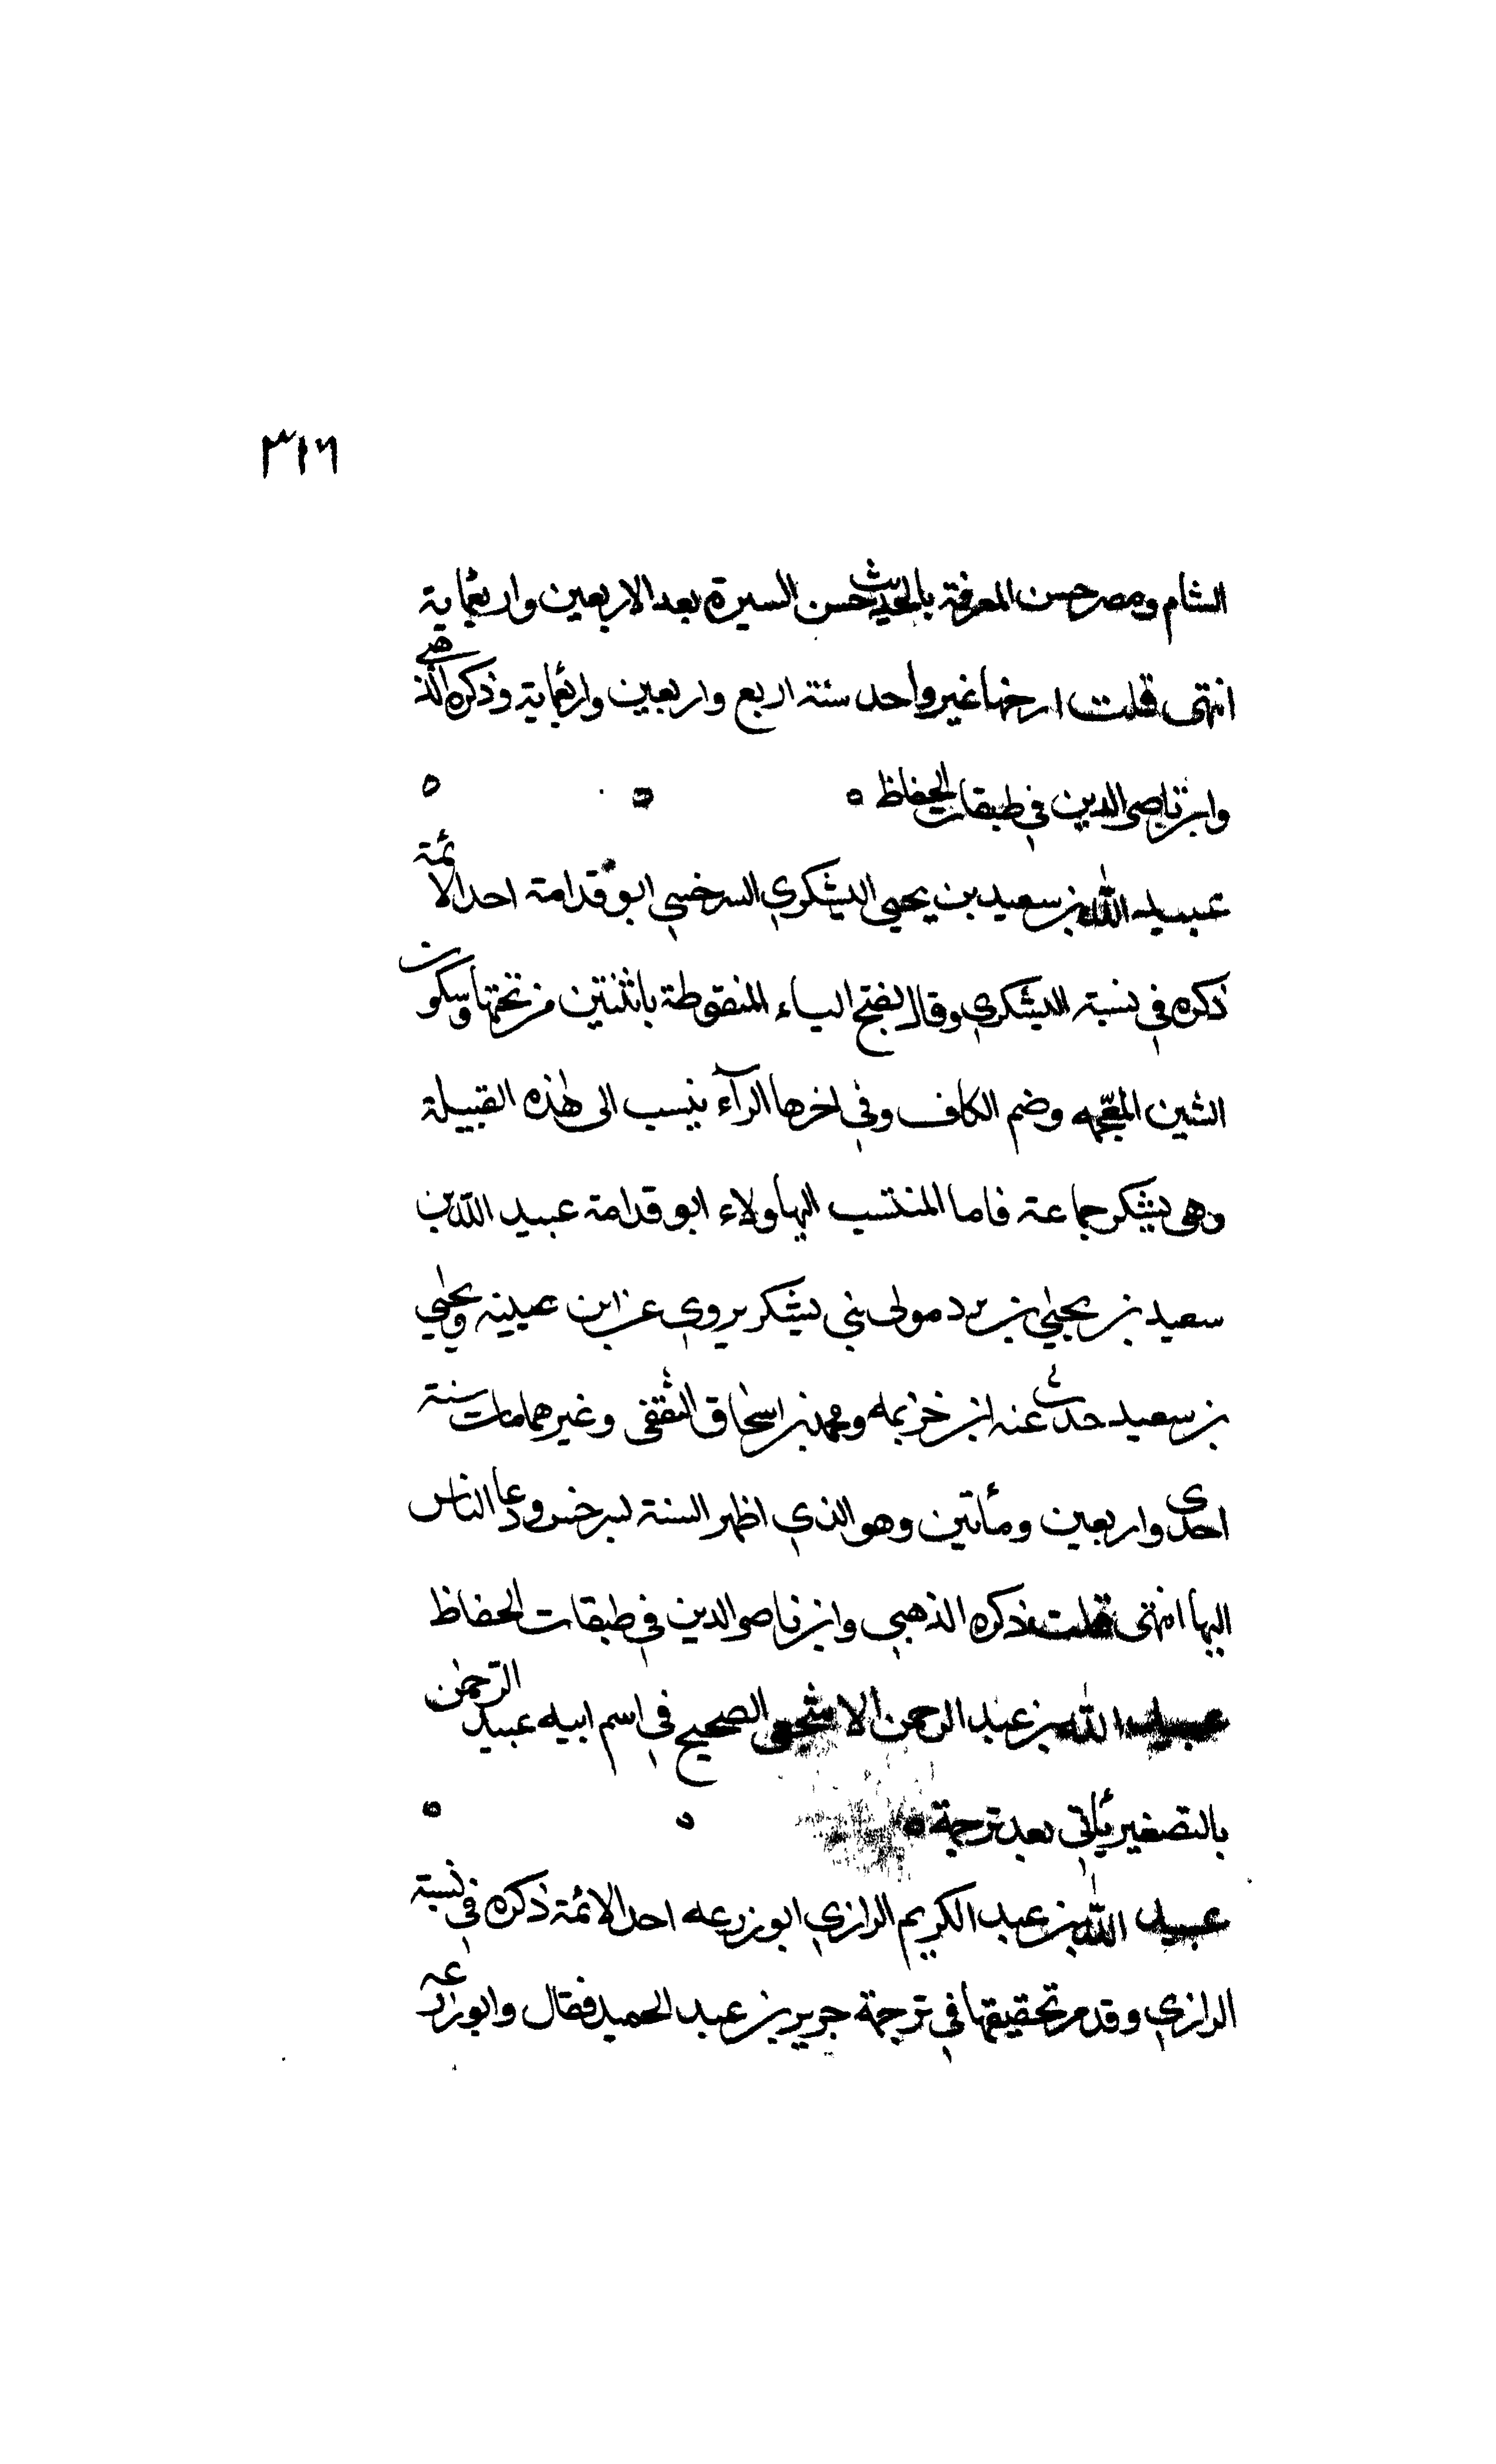 ٣١٦
الشام ومصر حسن المعرفة بالحديث حسن السيرة بعد الاربعين واربعماية
انتهى قلت ارخها غير واحد سنة اربع واربعين واربعماية وذكره الذهبي
وابن ناصر الدين في طبقات الحفاظ ه ه ه
عبيد الله بن سعيد بن يحيى اليشكري السرخسي ابو قدامة احد الائمة
ذكره في نسبة اليشكري وقال بفتح الياء المنقوطة باثنتين من تحتها وسكون
الشين المعجمه وضم الكاف وفي اخرها الرآء ينسب الى هذه القبيلة
وهي يشكر جماعة فاما المنتسب اليها ولاء ابو قدامة عبيد الله بن
سعيد بن يحيى بن برد مولى بني يشكر يروي عن ابن عيينه ويحيي
بن سعيد حدث عنه ابن خزيمه ومحمد بن اسحاق الثقفى وغيرهما مات سنة
احدى واربعين ومأتين وهو الذي اظهر السنة بسرخس ودعا الناس
اليها انتهى قلت ذكره الذهبي وابن ناصر الدين في طبقات الحفاظ
عبيد الله بن عبد الرحمن الاشجعي الصحيح في اسم ابيه عبيد الرحمن
بالتصغير يأتي بعد ترجمة ه ه ه
عبيد الله بن عبد الكريم الرازي ابو زرعه احد الائمة ذكره في نسبة
الرازي وقد مر تحقيقها في ترجمة جرير بن عبد الحميد فقال وابو زرعه